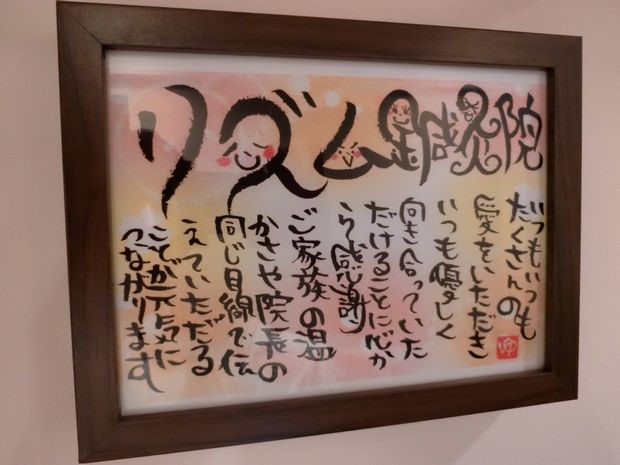 リズム鍼灸院
いつもいつも
たくさんの
愛をいただき
いつも優しく
向き合っていた
だけることに心か
ら感謝
ご家族の温
かさや院長の
同じ目線で伝
えていただる
ことが元気に
つながります
ゆ